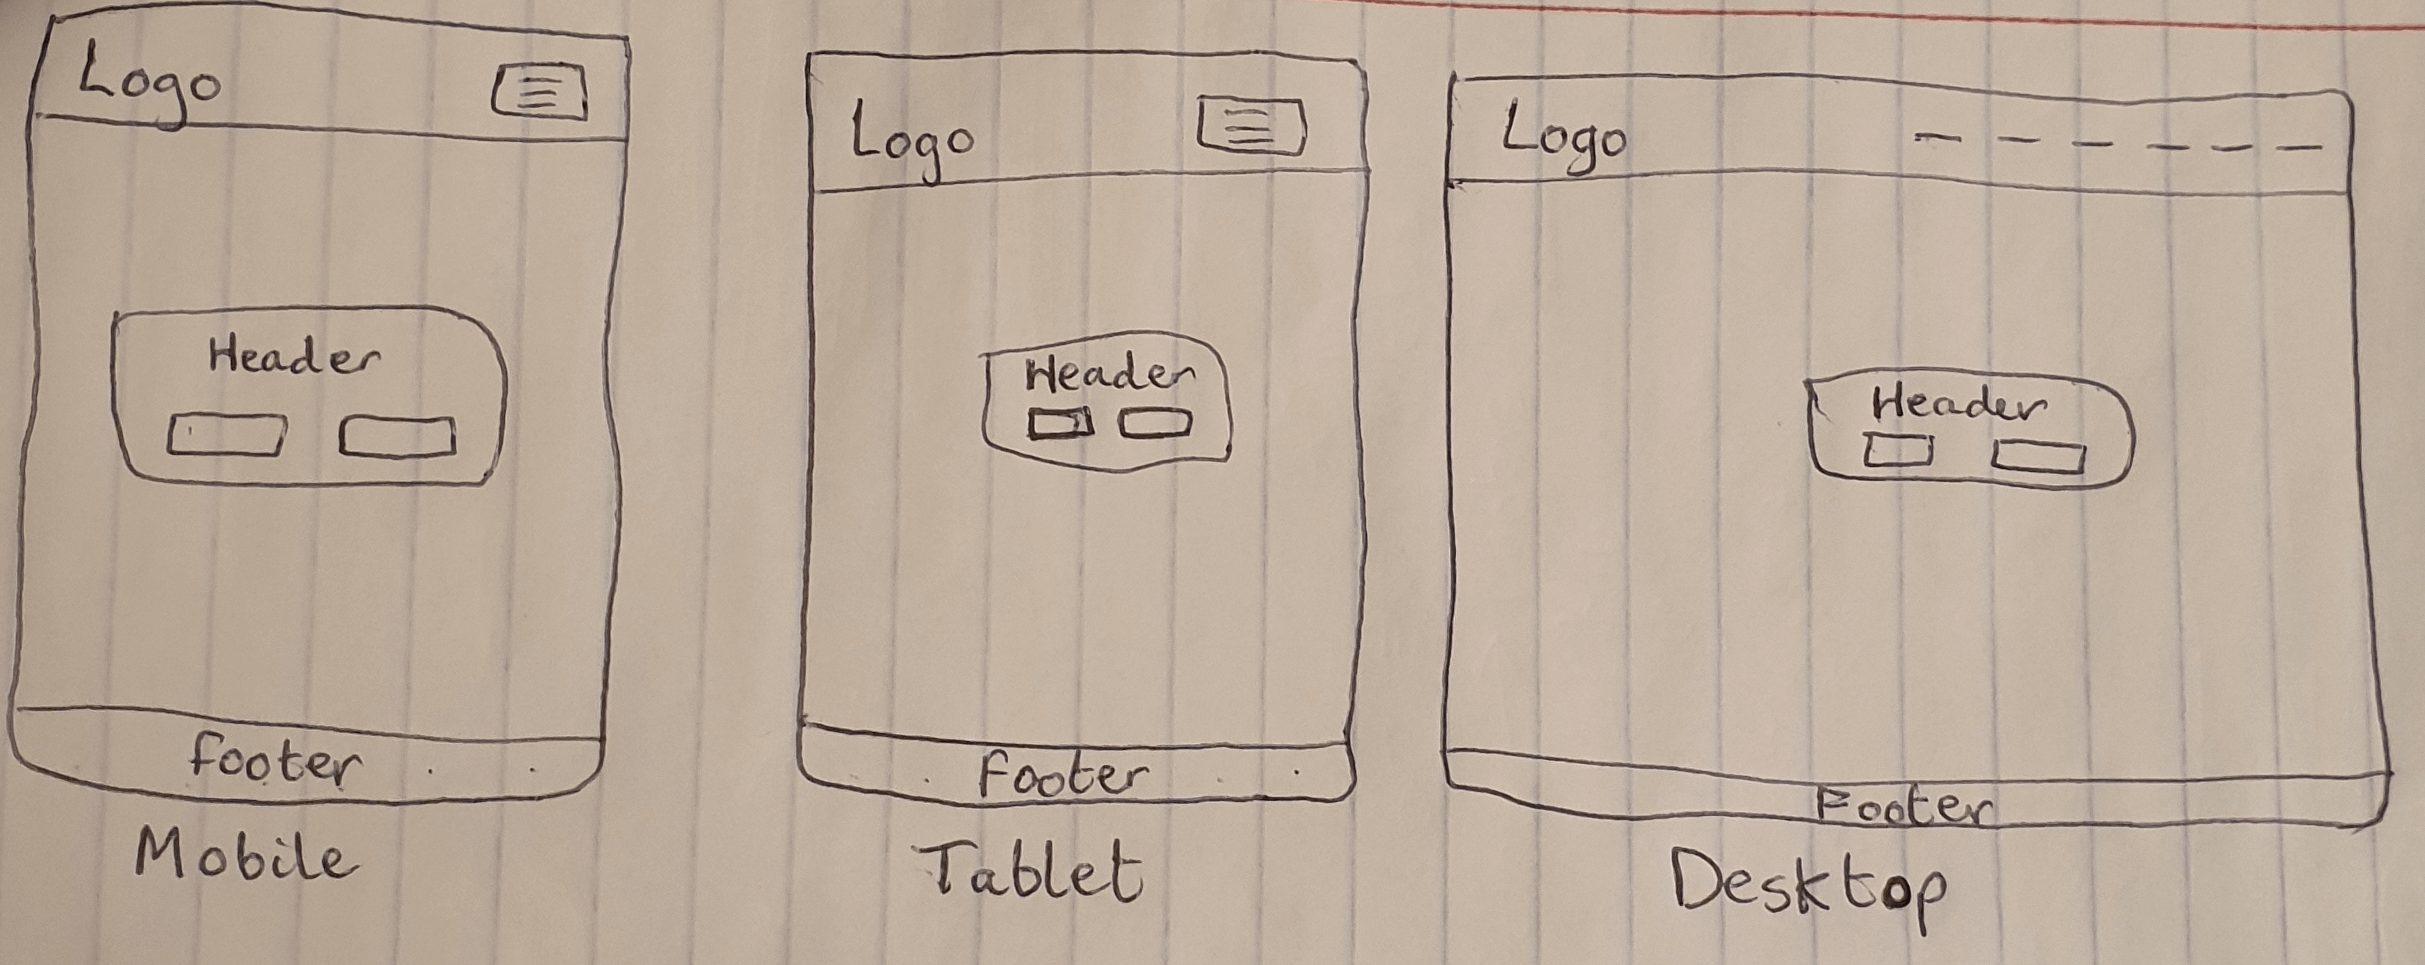 Logo
Header
footer
Mobile
Logo
Header
Footer
Tablet
Logo
Header
Footer
Desktop